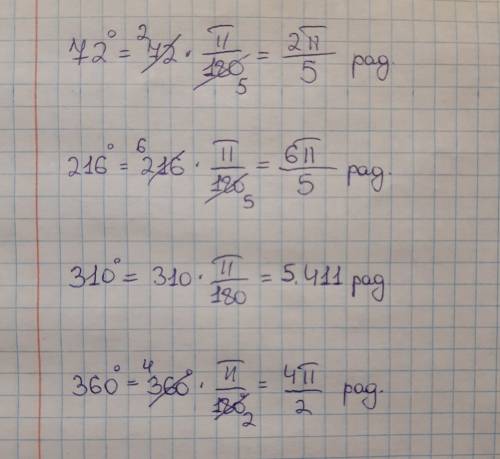 72° = 72² · π/180₅ = 2π/5 рад.
216° = ⁶216 · π/180₅ = 6π/5 рад.
310° = 310 · π/180 = 5.411 рад
360° = ⁴360° · π/180₂ = 4π/2 рад.